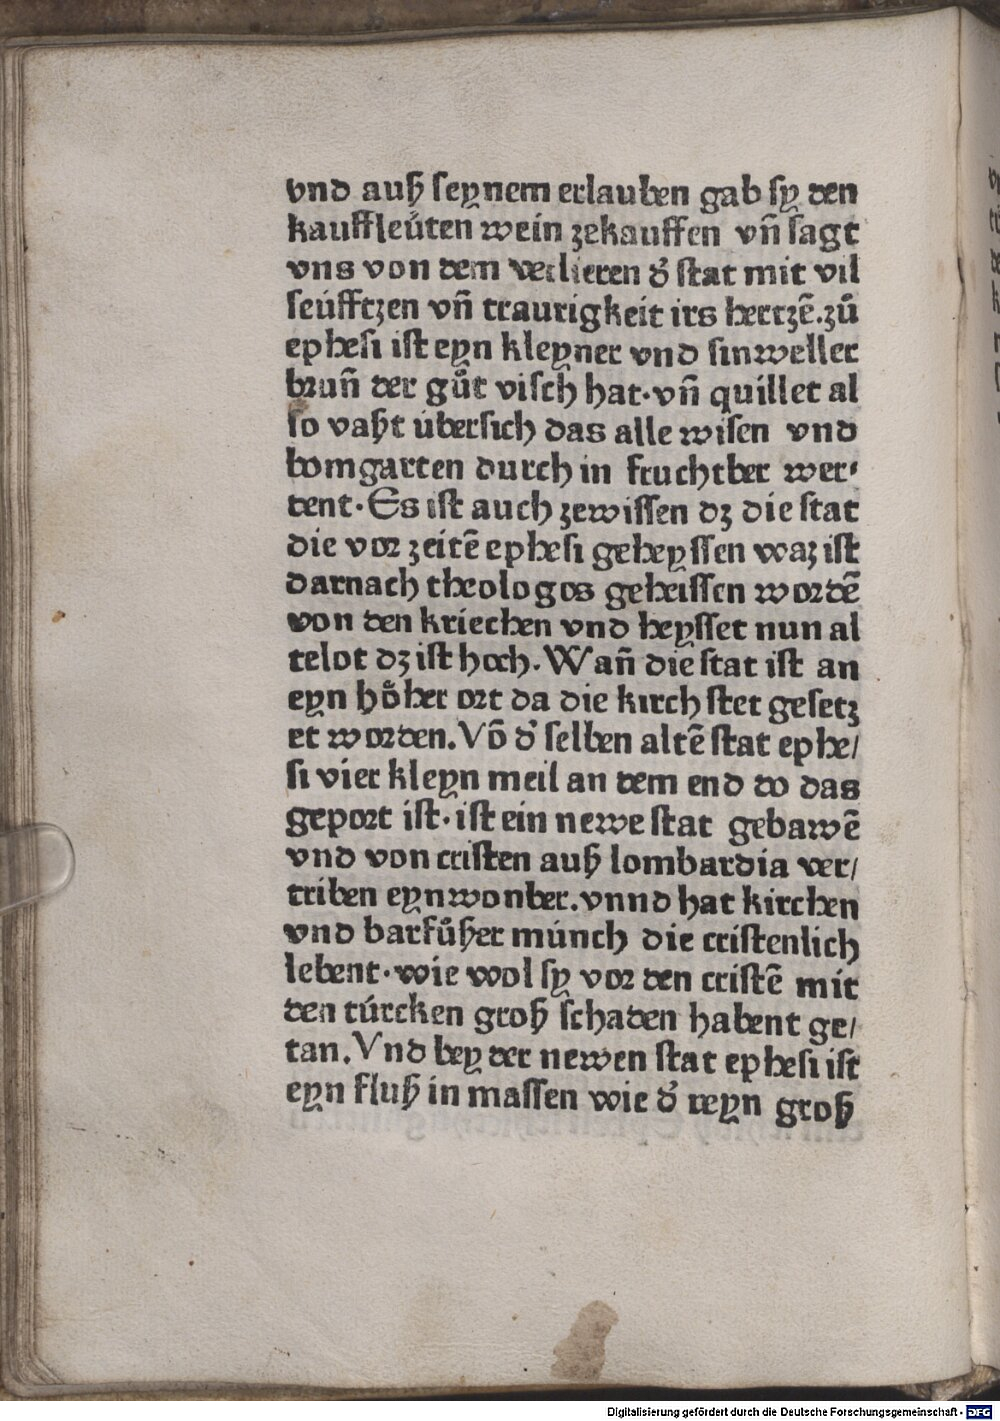 vnd auß ſeynem erlauben gab ſy den
kauffleúten wein zekauffen vn̄ ſagt
vns von dem verlieren d̕ ſtat mit vil
ſeúfftzen vn̄ traurigkeit irs hertzē. zů
epheſi iſt eyn kleyner vnd ſinweller
brun̄ der gůt viſch hat· vn̄ quillet al
ſo vaßt úberſich das alle wiſen vnd
bomgarten durch in fruchtber wer⸗
dent· Es iſt auch zewiſſen dz die ſtat
die vor zeitē epheſi geheyſſen waz iſt
darnach theologos geheiſſen wordē
von den kriechen vnd heyſſet nun al
telot dz iſt hoch. Wan̄ die ſtat iſt an
eyn hőher ort da die kirch ſtet geſetz
et worden. Vō d̕ ſelben altē ſtat ephe/
ſi vier kleyn meil an dem end do das
geport iſt· iſt ein newe ſtat gebawē
vnd von criſten auß lombardia ver/
triben eynwonber. vnnd hat kirchen
vnd barfůßer múnch die criſtenlich
lebent· wie wol ſy vor den criſtē mit
den túrcken groß ſchaden habent ge/
tan. Vnd bey der newen ſtat epheſi iſt
eyn fluß in maſſen wie d̕ reyn groß
Digitalisierung gefördert durch die Deutsche Forschungsgemeinschaft - DFG